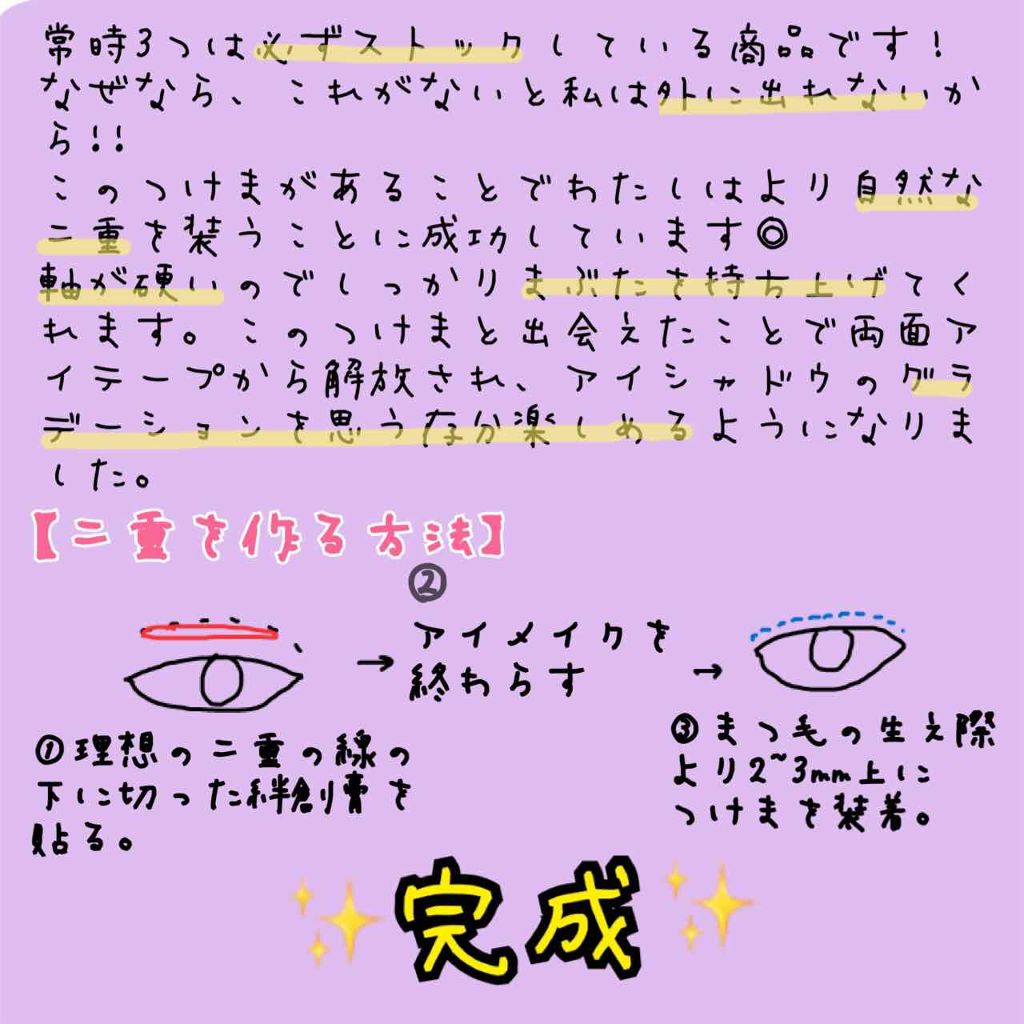 常時3つは必ずストックしている商品です!
なぜなら、これがないと私は外に出れないか
ら!!
このつけまがあることでわたしはより自然な
二重を装うことに成功しています◎
軸が硬いのでしっかりまぶたを持ち上げてく
れます。このつけまと出会えたことで両面ア
イテープから解放され、アイシャドウのグラ
デーションを思うな分楽しめるようになりま
した。
【二重を作る方法】
①理想の二重の線の
下に切った絆創膏を
貼る。
②
アイメイクを
終わらす
③まつ毛の生え際
より2~3mm上に
つけまを装着。
完成